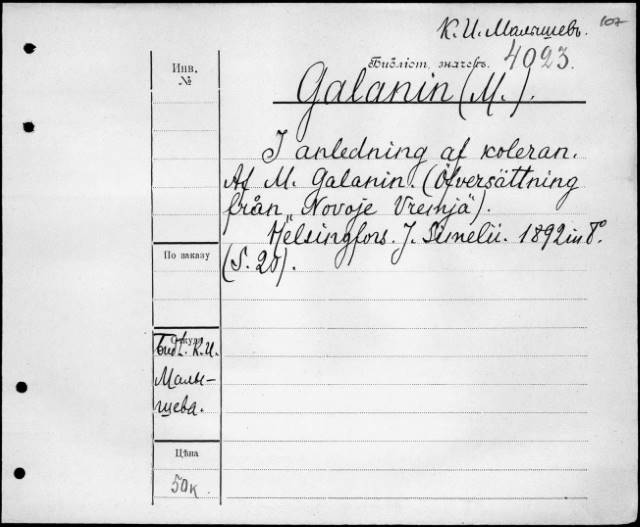 К. И. Малышевъ. 107
Инв.
№
Библіот. значекъ. 4023.
Galanin (M.).
I anledning af koleran.
Af M. Galanin. (Öfversättning
från „Novoje Vremjä").
Helsingfors. J. Simelii. 1892 in 8°
(S. 20).
По заказу
Откуда
Библ. К. И.
Малы-
шева.
Цѣна
50 к.